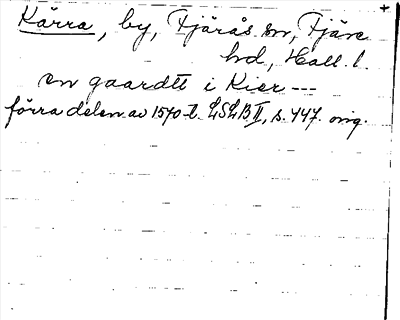 Kärra, by, Fjärås sn, Fjäre
hd, Hall. l.
en gaardtt i Kier ---
förra delen av 1570-t. LSLB II, s. 447. orig.